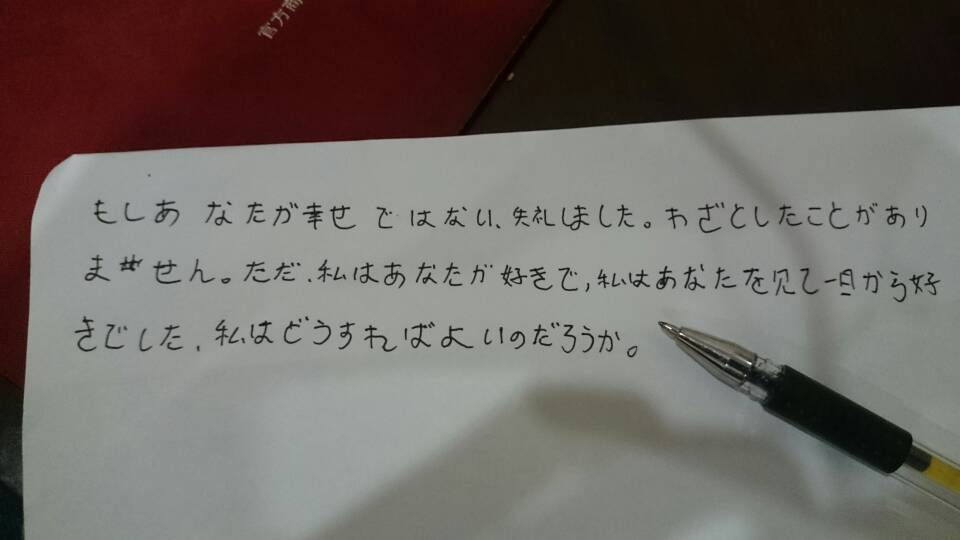 官方商
もしあなたが幸せではない、失礼しました。わざとしたことがあり
ません。ただ、私はあなたが好きで,私はあなたを见て一旦から好
きでした、私はどうすればよいのだろうか。